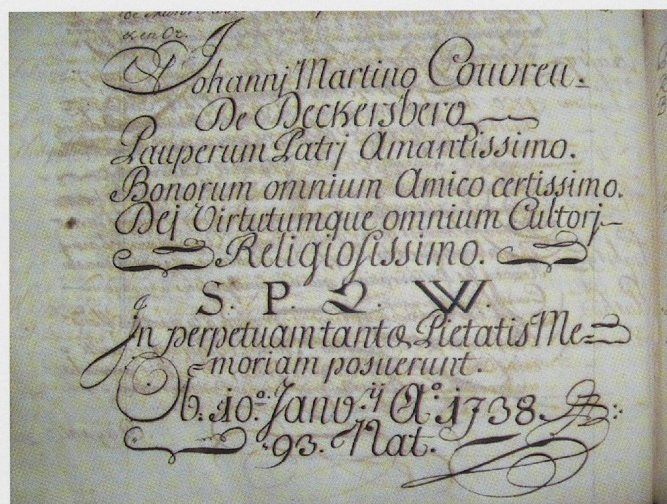 & en Or.
Johannj Martino Couvreu.
De Deckersberg
Pauperum Patrj Amantissimo.
Bonorum omnium Amico certissimo.
Dej Virtutumque omnium Cultorj
Religiosissimo.
S. P. Q. W.
Jn perpetuam tantæ Pietatis Me=
=moriam posuerunt.
Ob: 10.º Janv.ÿ Aº. 1738.
93. Nat.